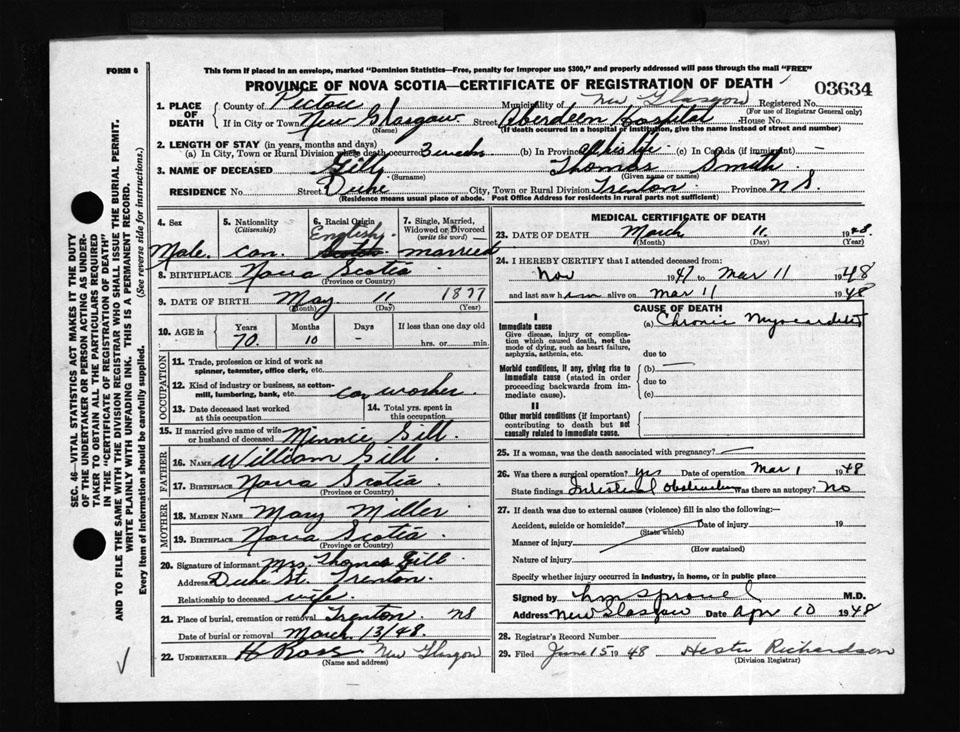 FORM 6
This form if placed in an envelope, marked "Dominion Statistics—Free, penalty for improper use $300," and properly addressed will pass through the mail "FREE"
PROVINCE OF NOVA SCOTIA—CERTIFICATE OF REGISTRATION OF DEATH
03634
1. PLACE OF DEATH
County of Pictou Municipality of New Glasgow Registered No.
(For use of Registrar General only)
If in City or Town New Glasgow Street Aberdeen Hospital House No.
(Name) (If death occurred in a hospital or institution, give the name instead of street and number)
2. LENGTH OF STAY (in years, months and days)
(a) In City, Town or Rural Division where death occurred 3 weeks (b) In Province all his life (c) In Canada (if immigrant)
3. NAME OF DECEASED Gill Thomas Smith
(Surname) (Given name or names)
RESIDENCE No. Street Duke City, Town or Rural Division Trenton Province N.S.
(Residence means usual place of abode. Post Office Address for residents in rural parts not sufficient)
4. Sex
Male
5. Nationality
(Citizenship)
Can.
6. Racial Origin
English
Scotch
7. Single, Married, Widowed or Divorced
(write the word)
married
8. BIRTHPLACE Nova Scotia
(Province or Country)
9. DATE OF BIRTH May 11 1877
(Month) (Day) (Year)
10. AGE in Years Months Days If less than one day old
70. 10 - hrs. or min.
OCCUPATION
11. Trade, profession or kind of work as spinner, teamster, office clerk, etc.
12. Kind of industry or business, as cotton-mill, lumbering, bank, etc. car worker
13. Date deceased last worked at this occupation
14. Total yrs. spent in this occupation
15. If married give name of wife or husband of deceased Minnie Gill.
FATHER
16. NAME William Gill.
17. BIRTHPLACE Nova Scotia
(Province or Country)
MOTHER
18. MAIDEN NAME Mary Miller
19. BIRTHPLACE Nova Scotia
(Province or Country)
20. Signature of informant Mrs. Thomas Gill
Address Duke St. Trenton.
Relationship to deceased wife.
21. Place of burial, cremation or removal Trenton NS
Date of burial or removal March 13/48.
22. UNDERTAKER H Ross New Glasgow
(Name and address)
MEDICAL CERTIFICATE OF DEATH
23. DATE OF DEATH March 11. 1948.
(Month) (Day) (Year)
24. I HEREBY CERTIFY that I attended deceased from:
Nov 1947 to Mar 11 1948
and last saw him alive on Mar 11 1948
CAUSE OF DEATH
I
Immediate cause (a) Chronic Myocarditis
Give disease, injury or complication which caused death, not the mode of dying, such as heart failure, asphyxia, asthenia, etc.
due to
Morbid conditions, if any, giving rise to immediate cause (stated in order proceeding backwards from immediate cause).
(b) —
due to
(c)
II
Other morbid conditions (if important) contributing to death but not causally related to immediate cause.
25. If a woman, was the death associated with pregnancy? —
26. Was there a surgical operation? yes Date of operation Mar 1 1948
State findings Intestinal Obstruction Was there an autopsy? No
27. If death was due to external causes (violence) fill in also the following:—
Accident, suicide or homicide? Date of injury 19
(State which)
Manner of injury
(How sustained)
Nature of injury
Specify whether injury occurred in industry, in home, or in public place
Signed by H M Sproul M.D.
Address New Glasgow Date Apr 10 1948
28. Registrar's Record Number
29. Filed June 15 1948 Hester Richardson
(Division Registrar)
SEC. 46—VITAL STATISTICS ACT MAKES IT THE DUTY
OF THE UNDERTAKER OR PERSON ACTING AS UNDER-
TAKER TO OBTAIN ALL THE PARTICULARS REQUIRED
IN THE "CERTIFICATE OF REGISTRATION OF DEATH"
AND TO FILE THE SAME WITH THE DIVISION REGISTRAR WHO SHALL ISSUE THE BURIAL PERMIT.
WRITE PLAINLY WITH UNFADING INK. THIS IS A PERMANENT RECORD.
Every item of information should be carefully supplied. (See reverse side for instructions.)